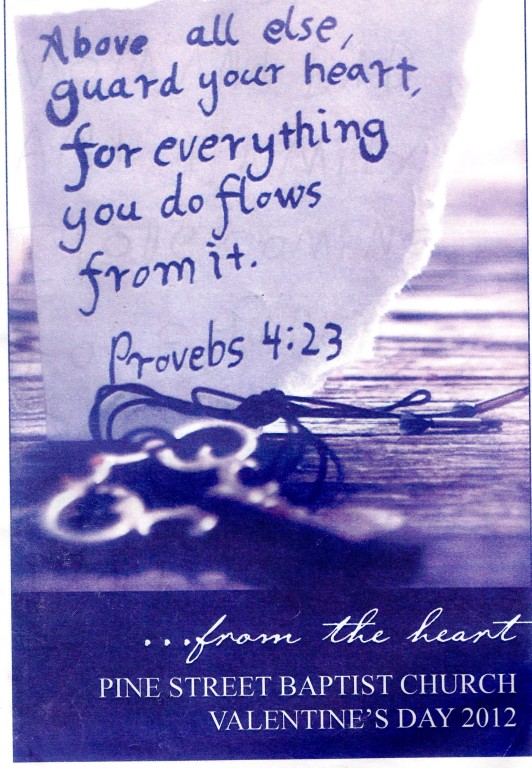 Above all else,
guard your heart,
for everything
you do flows
from it.
Provebs 4:23
...from the heart
PINE STREET BAPTIST CHURCH
VALENTINE'S DAY 2012